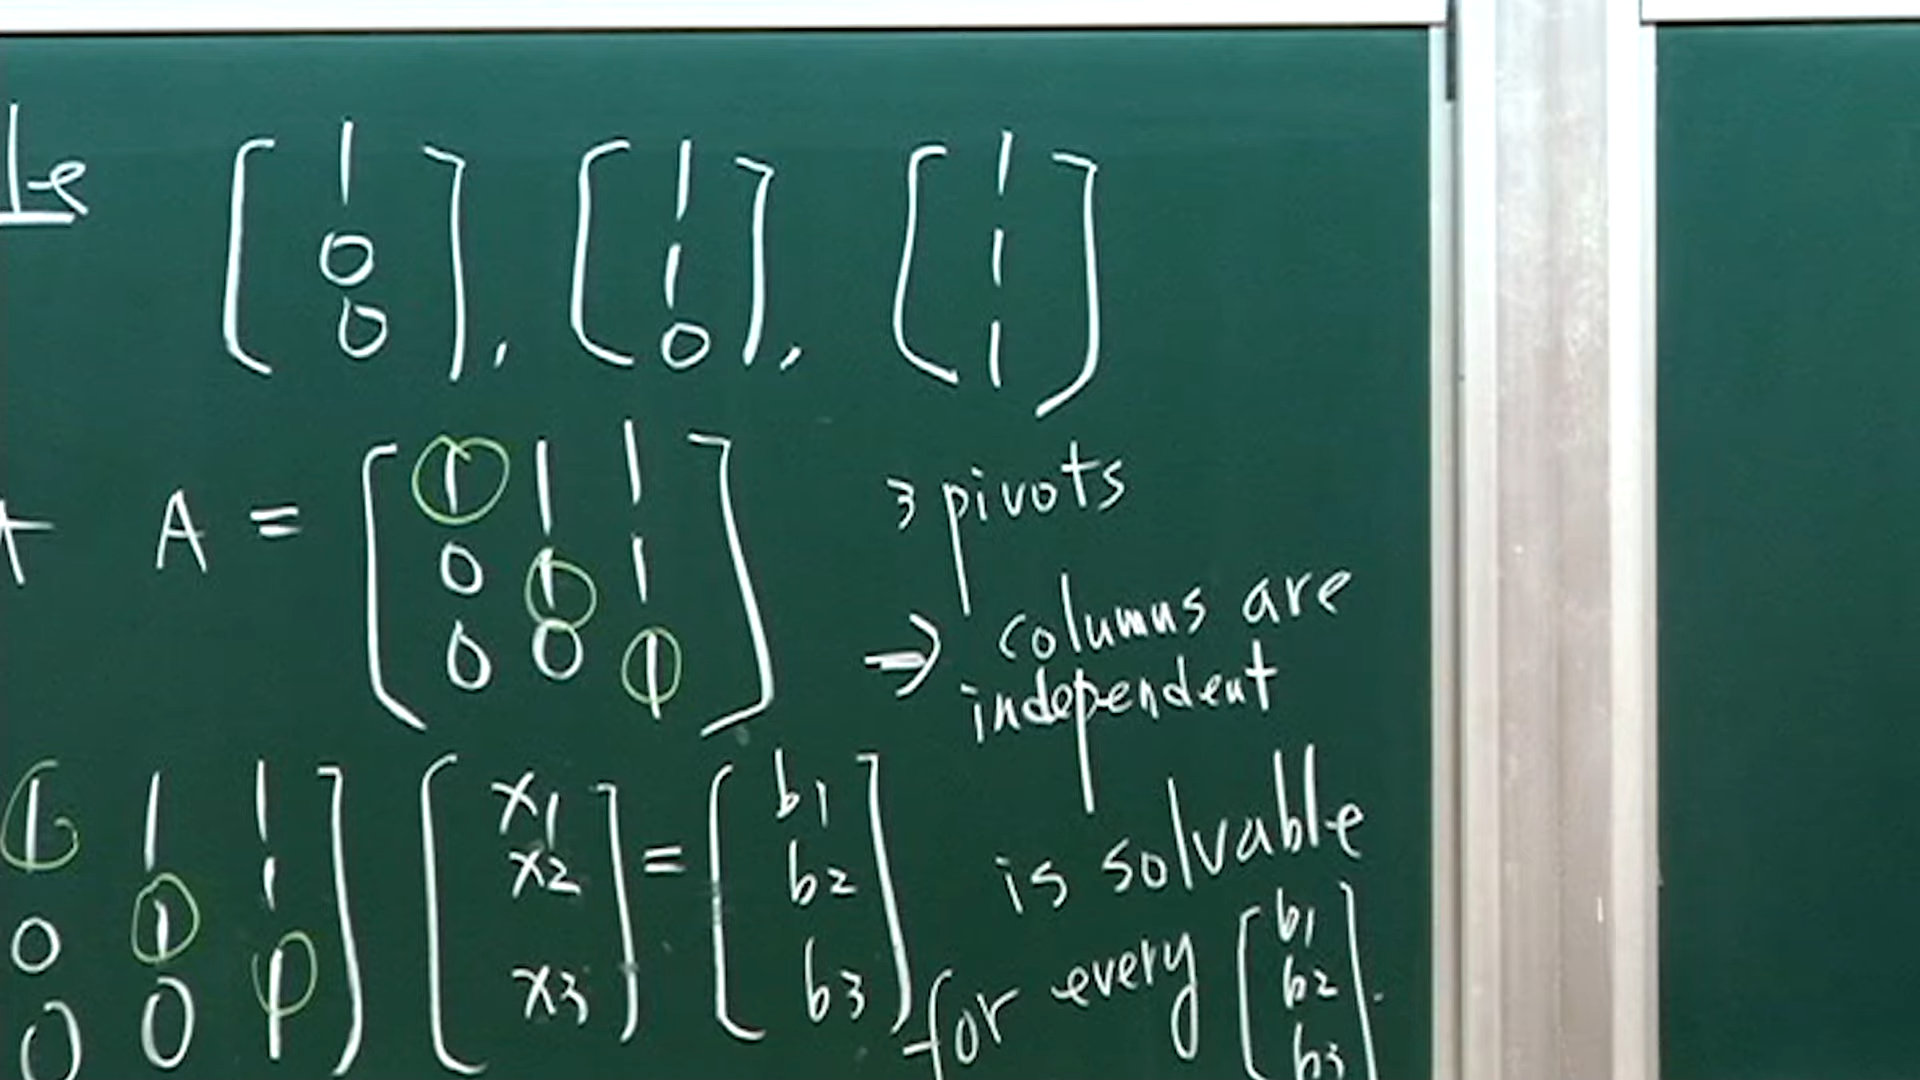 le [1 0 0], [1 1 0], [1 1 1]
A = [1 1 1
0 1 1
0 0 1]
3 pivots
→ columns are
independent
[1 1 1
0 1 1
0 0 1] [x1 x2 x3] = [b1 b2 b3] is solvable
for every [b1 b2 b3].